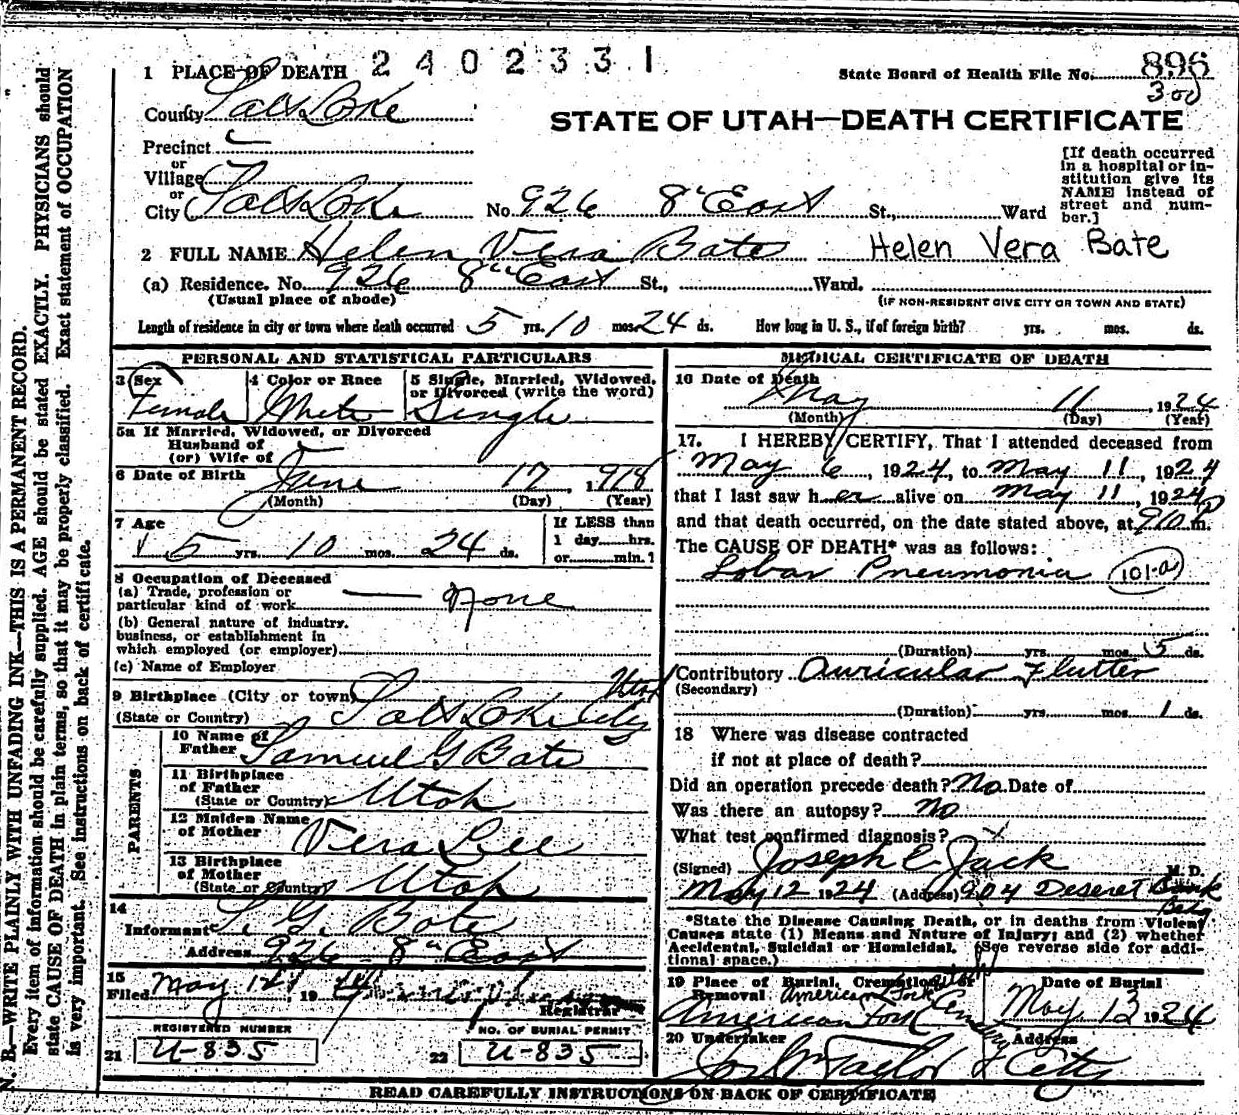 1 PLACE OF DEATH 2402331
State Board of Health File No. 896
300
County Salt Lake
STATE OF UTAH—DEATH CERTIFICATE
Precinct
or
Village
or
City Salt Lake No. 926 8" East St., Ward
[If death occurred
in a hospital or in-
stitution give its
NAME instead of
street and num-
ber.]
2 FULL NAME Helen Vera Bate Helen Vera Bate
(a) Residence. No. 926 8" East St., Ward.
(Usual place of abode) (IF NON-RESIDENT GIVE CITY OR TOWN AND STATE)
Length of residence in city or town where death occurred 5 yrs. 10 mos. 24 ds. How long in U. S., if of foreign birth? yrs. mos. ds.
PERSONAL AND STATISTICAL PARTICULARS
3 Sex 4 Color or Race 5 Single, Married, Widowed,
or Divorced (write the word)
Female White Single
5a If Married, Widowed, or Divorced
Husband of
(or) Wife of
6 Date of Birth June 17 1918
(Month) (Day) (Year)
7 Age If LESS than
5 yrs. 10 mos. 24 ds. 1 day hrs.
or min. ?
8 Occupation of Deceased
(a) Trade, profession or
particular kind of work None
(b) General nature of industry,
business, or establishment in
which employed (or employer)
(c) Name of Employer
9 Birthplace (City or town) Salt Lake City Utah
(State or Country)
PARENTS
10 Name of
Father Samuel G Bate
11 Birthplace
of Father
(State or Country) Utah
12 Maiden Name
of Mother Vera Lee
13 Birthplace
of Mother
(State or Country) Utah
14
Informant S. G. Bate
Address 926 8" East
15
Filed May 12 1924
Registrar
REGISTERED NUMBER NO. OF BURIAL PERMIT
21 U-835 22 U-835
MEDICAL CERTIFICATE OF DEATH
16 Date of Death
May 11, 1924
(Month) (Day) (Year)
17. I HEREBY CERTIFY, That I attended deceased from
May 6, 1924, to May 11, 1924
that I last saw her alive on May 11, 1924
and that death occurred, on the date stated above, at 910 P m.
The CAUSE OF DEATH* was as follows:
Lobar Pneumonia 101-a
(Duration) yrs. mos. 5 ds.
Contributory Auricular Flutter
(Secondary)
(Duration) yrs. mos. 1 ds.
18 Where was disease contracted
if not at place of death?
Did an operation precede death? No. Date of
Was there an autopsy? No
What test confirmed diagnosis? x
(Signed) Joseph E Jack M. D.
May 12 1924 (Address) 904 Deseret Bank
Bldg
*State the Disease Causing Death, or in deaths from Violent
Causes state (1) Means and Nature of Injury; and (2) whether
Accidental, Suicidal or Homicidal. (See reverse side for addi-
tional space.)
19 Place of Burial, Cremation or Date of Burial
Removal American Fork
American Fork City Cemetery May, 13 1924
20 Undertaker Address
Jos Wm Taylor City
READ CAREFULLY INSTRUCTIONS ON BACK OF CERTIFICATE
N. B.—WRITE PLAINLY WITH UNFADING INK—THIS IS A PERMANENT RECORD.
Every item of information should be carefully supplied. AGE should be stated EXACTLY. PHYSICIANS should
state CAUSE OF DEATH in plain terms, so that it may be properly classified. Exact statement of OCCUPATION
is very important. See instructions on back of certificate.